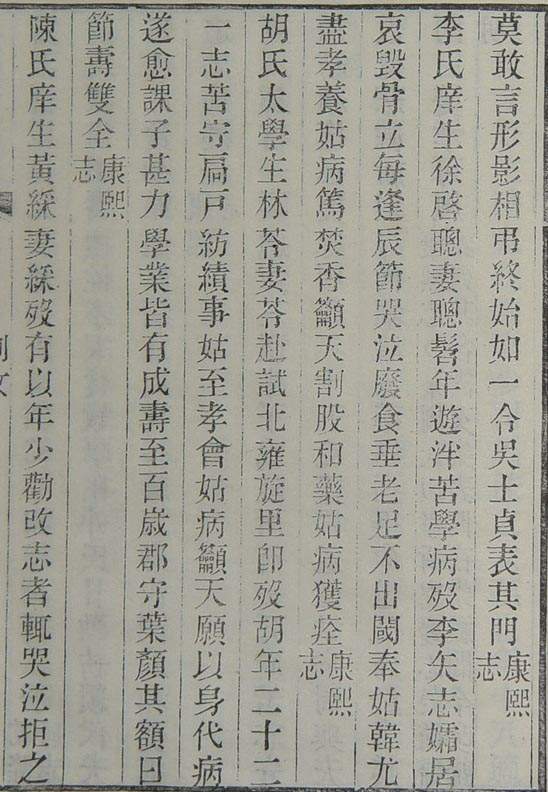 莫敢言形影相弔終始如一令吳士貞表其門康熙志
李氏庠生徐啓聰妻聰髫年遊泮苦學病歿李矢志孀居
哀毀骨立每逢辰節哭泣廢食垂老足不出閾奉姑韓尤
盡孝養姑病篤焚香籲天割股和藥姑病獲痊康熙志
胡氏太學生林荅妻荅赴試北雍旋里卽歿胡年二十二
一志苦守扃戸紡績事姑至孝會姑病籲天願以身代病
遂愈課子甚力學業皆有成壽至百歲郡守葉顏其額曰
節壽雙全康熙志
陳氏庠生黃綵妻綵歿有以年少勸改志者輒哭泣拒之